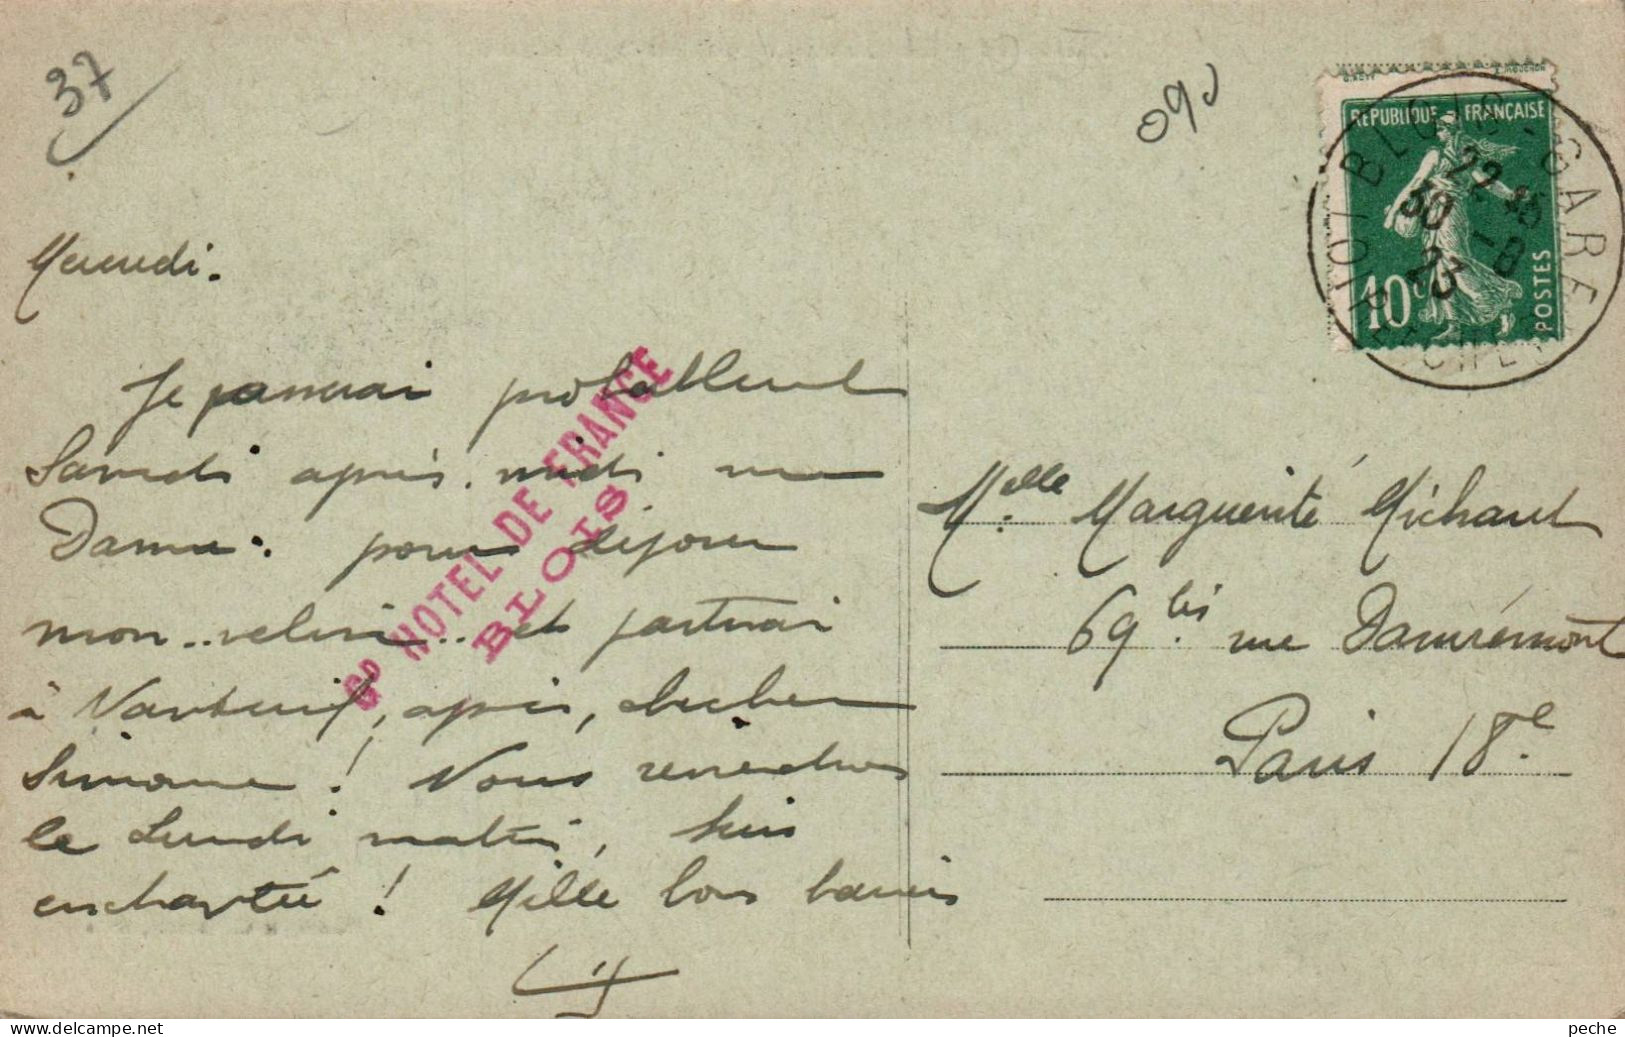 37
09
Mercredi.
Je passerai probablement
Samedi après-midi rue
Damré. pour déjouer
mon .. et partirai
à Nanteuil, après, chercher
Simone ! Nous reviendrons
le Lundi matin, suis
enchantée ! Mille bons baisers
GD HOTEL DE FRANCE
BLOIS
O. ROTY E. MOUCHON
REPUBLIQUE FRANÇAISE
10c
POSTES
BLOIS-GARE
22
30 -8
23
LOIR-ET-CHER
Melle Marguerite Michaut
69 bis rue Damrémont
Paris 18e
www.delcampe.net
peche